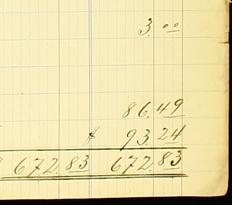 3.00
86.49
93.24
672.83 672.83